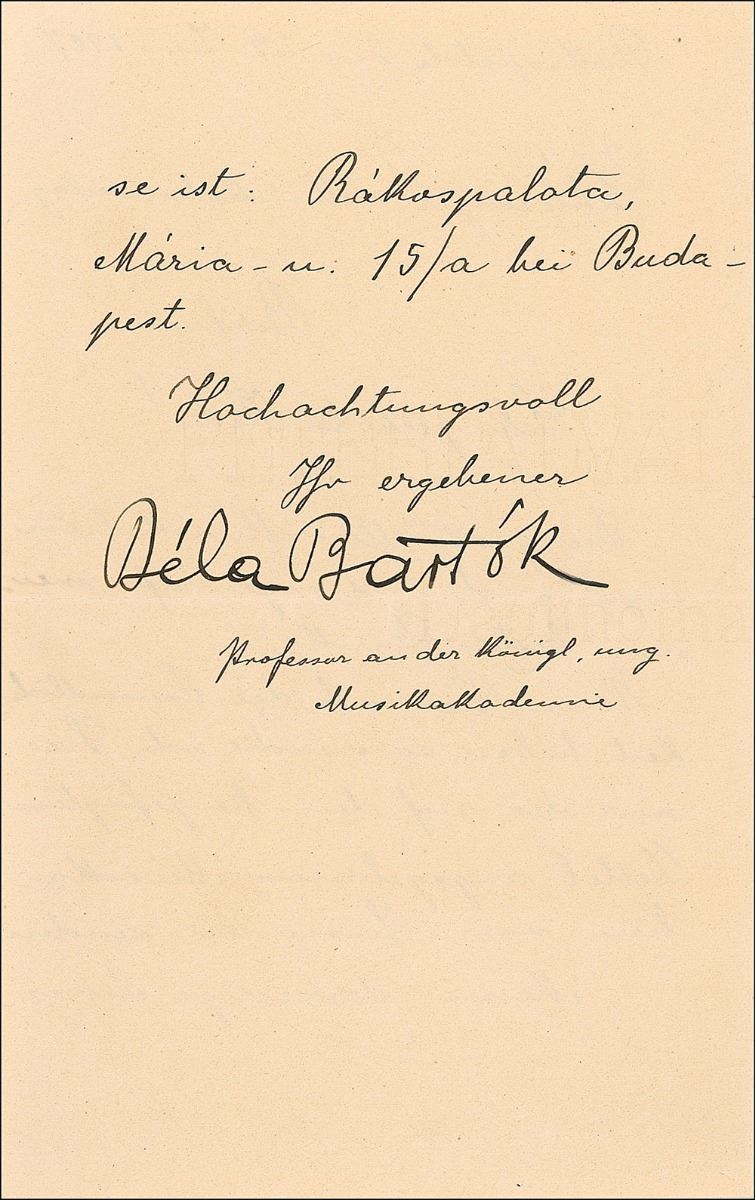 se ist: Rákospalota,
Mária-u. 15/a bei Buda-
pest.
Hochachtungsvoll
Ihr ergebener
Béla Bartók
Professor an der Königl. ung.
Musikakademie